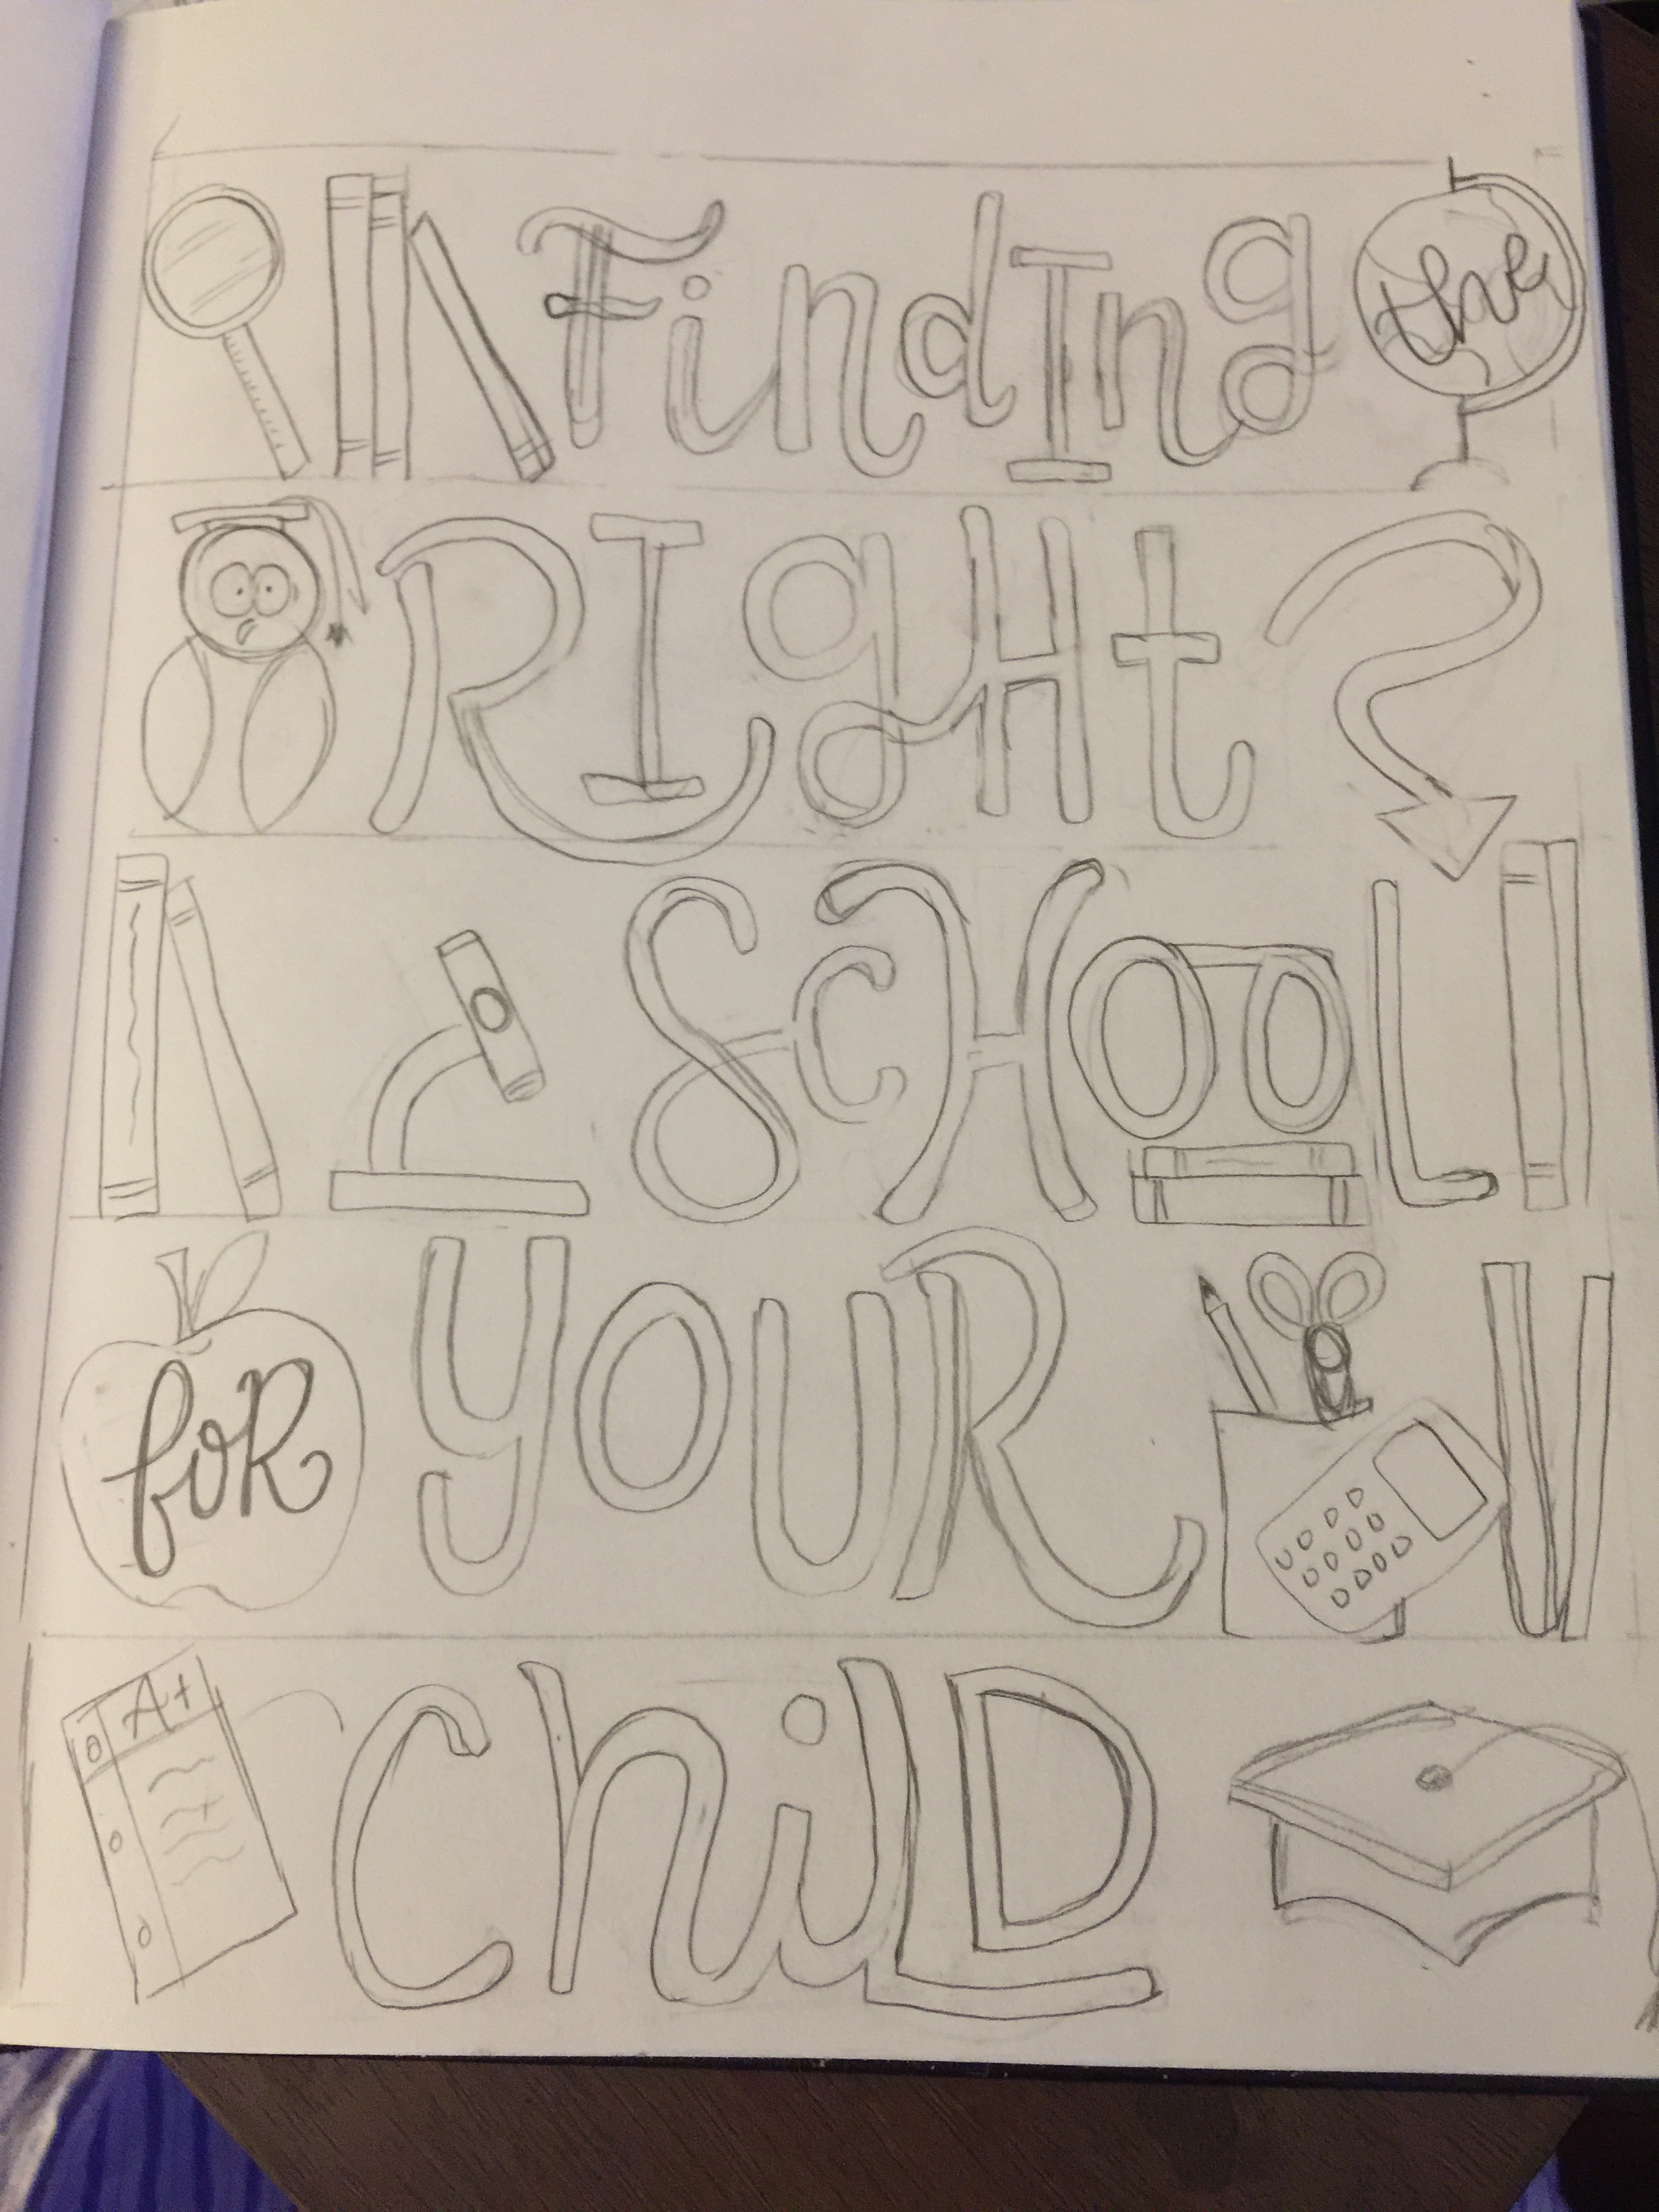 FindIng the
RIgHt
ScHooL
foR YouR
A+
ChiLD